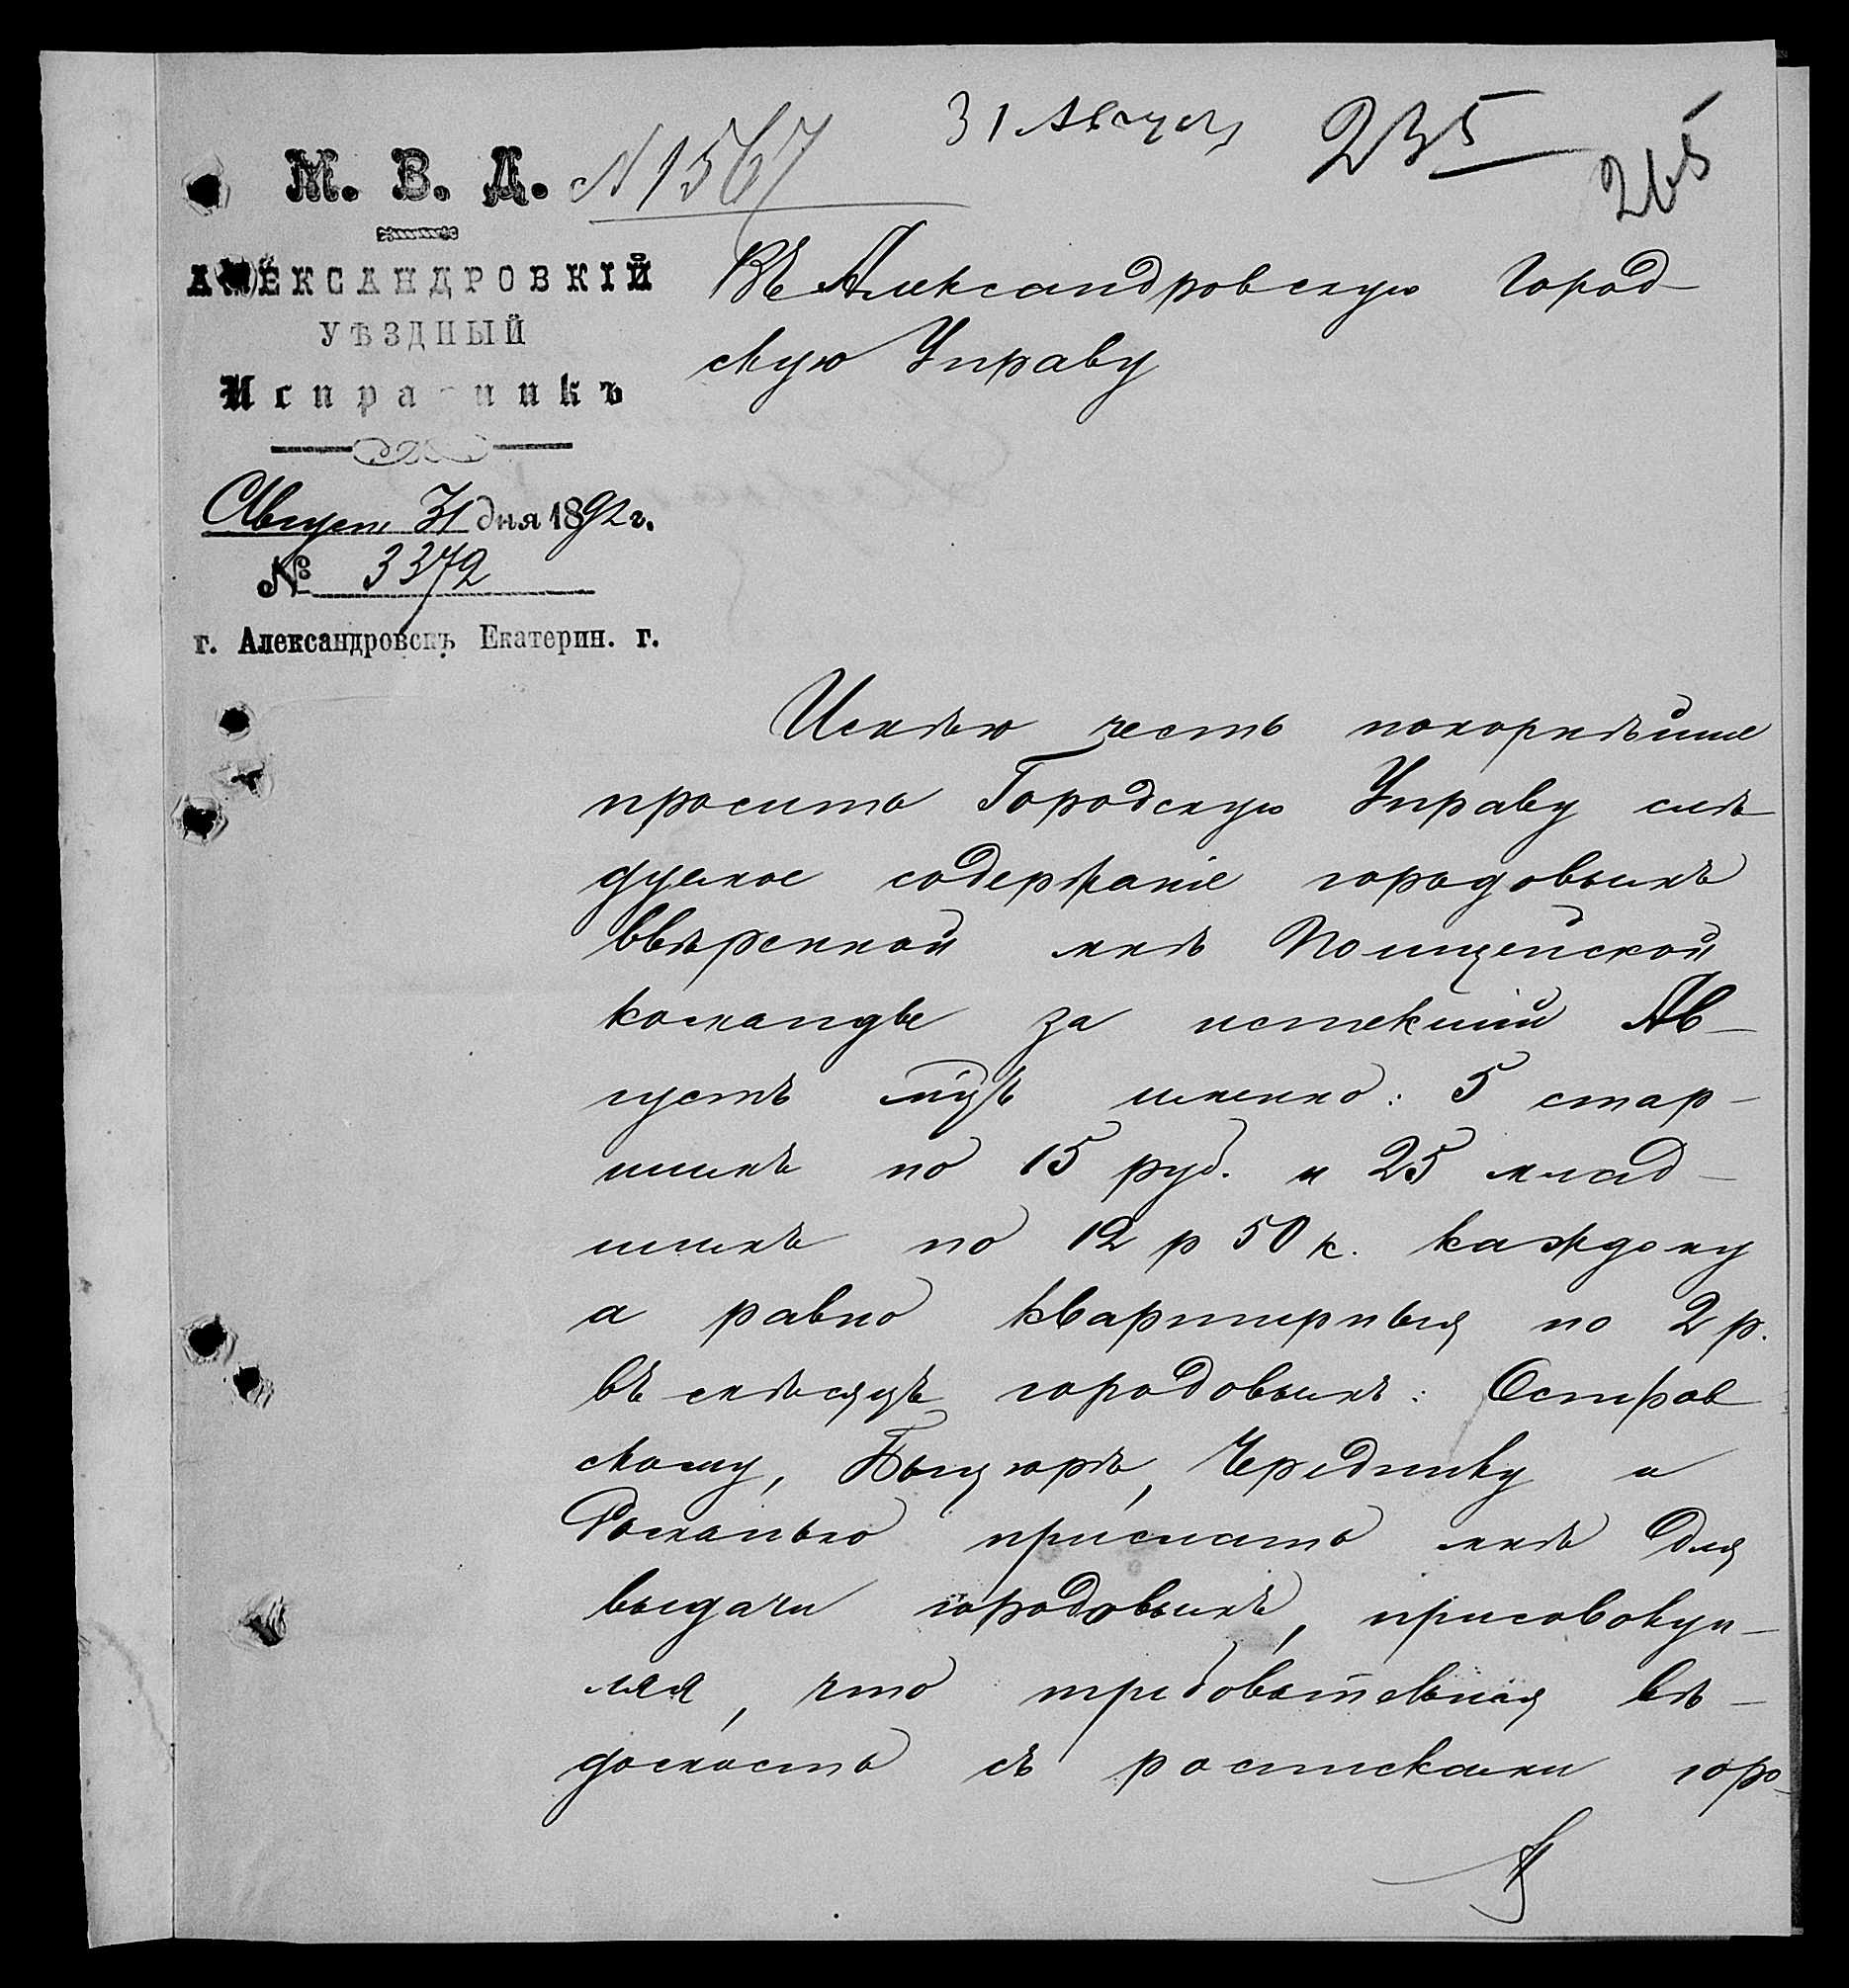 31 Август
235
265
М. В. Д.
№ 1567
АЛЕКСАНДРОВКІЙ
УѢЗДНЫЙ
Исправникъ
Август 31 дня 1892 г.
№ 3372
г. Александровскъ Екатерин. г.
Въ Александровскую Город-
скую Управу
Имѣю честь покорнѣйше
просить Городскую Управу слѣ-
дуемое содержаніе городовымъ
ввѣренной мнѣ Полицейской
команды за истекший Ав-
густъ м-цъ именно: 5 стар-
шимъ по 15 руб. и 25 млад-
шимъ по 12 р 50 к. каждому
а равно квартирныя по 2 р.
въ мѣсяцъ городовымъ: Остров
скому, Череднику и
прислать мнѣ для
выдачи городовымъ, присовокуп-
ляя, что требовательная вѣ-
домость съ росписками горо-